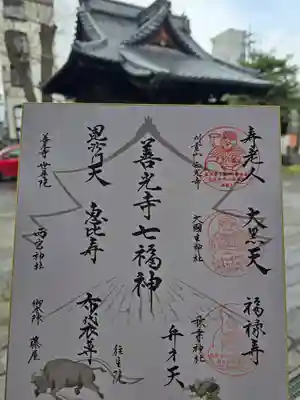 寿老人
刈萱山西光寺
大黒天
大國主神社
福禄寿
秋葉神社
善光寺七福神
弁才天
往生院
毘沙門天
善光寺世尊院
恵比寿
西宮神社
布袋尊
御本陳
藤屋